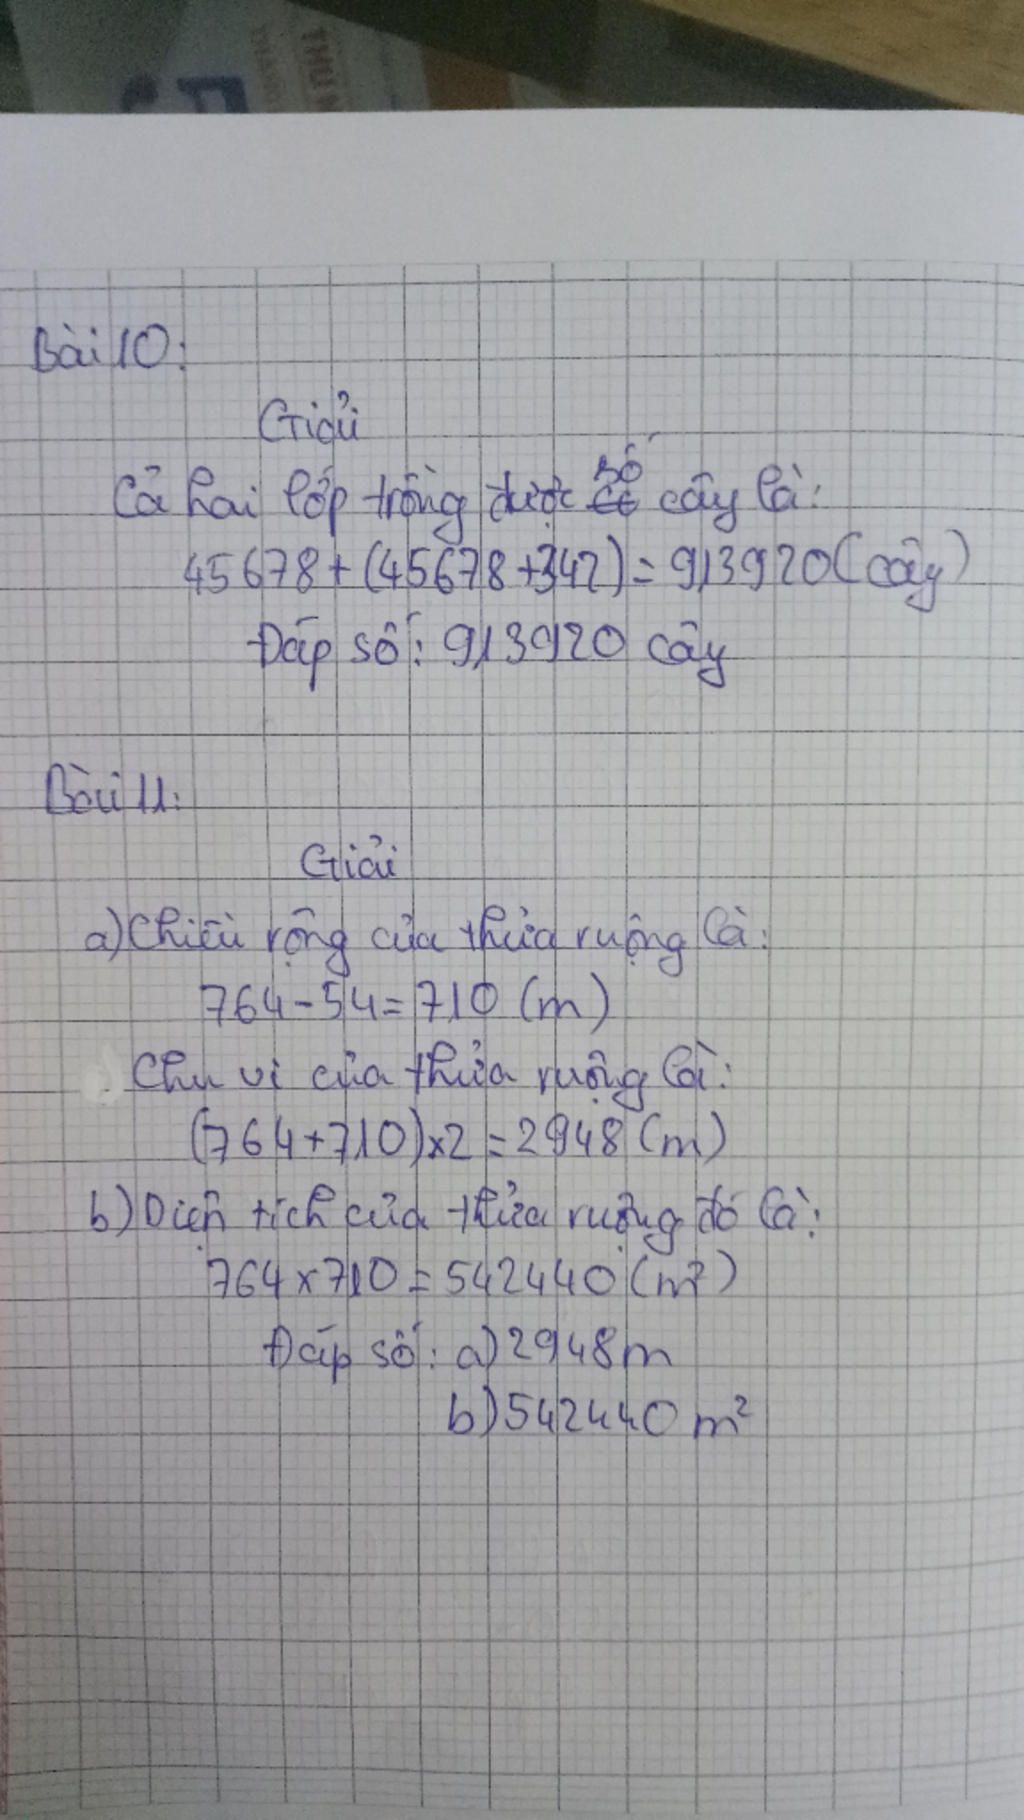 THU N
Bài 10:
Giải
Cả hai lớp trồng được số cây là:
45678+(45678+342)=913920(cây)
Đáp số: 913920 cây
Bài 11:
Giải
a) Chiều rộng của thửa ruộng là:
764-54=710 (m)
Chu vi của thửa ruộng là:
(764+710)x2=2948 (m)
b) Diện tích của thửa ruộng đó là:
764x710=542440 (m²)
Đáp số: a) 2948m
b) 542440 m²